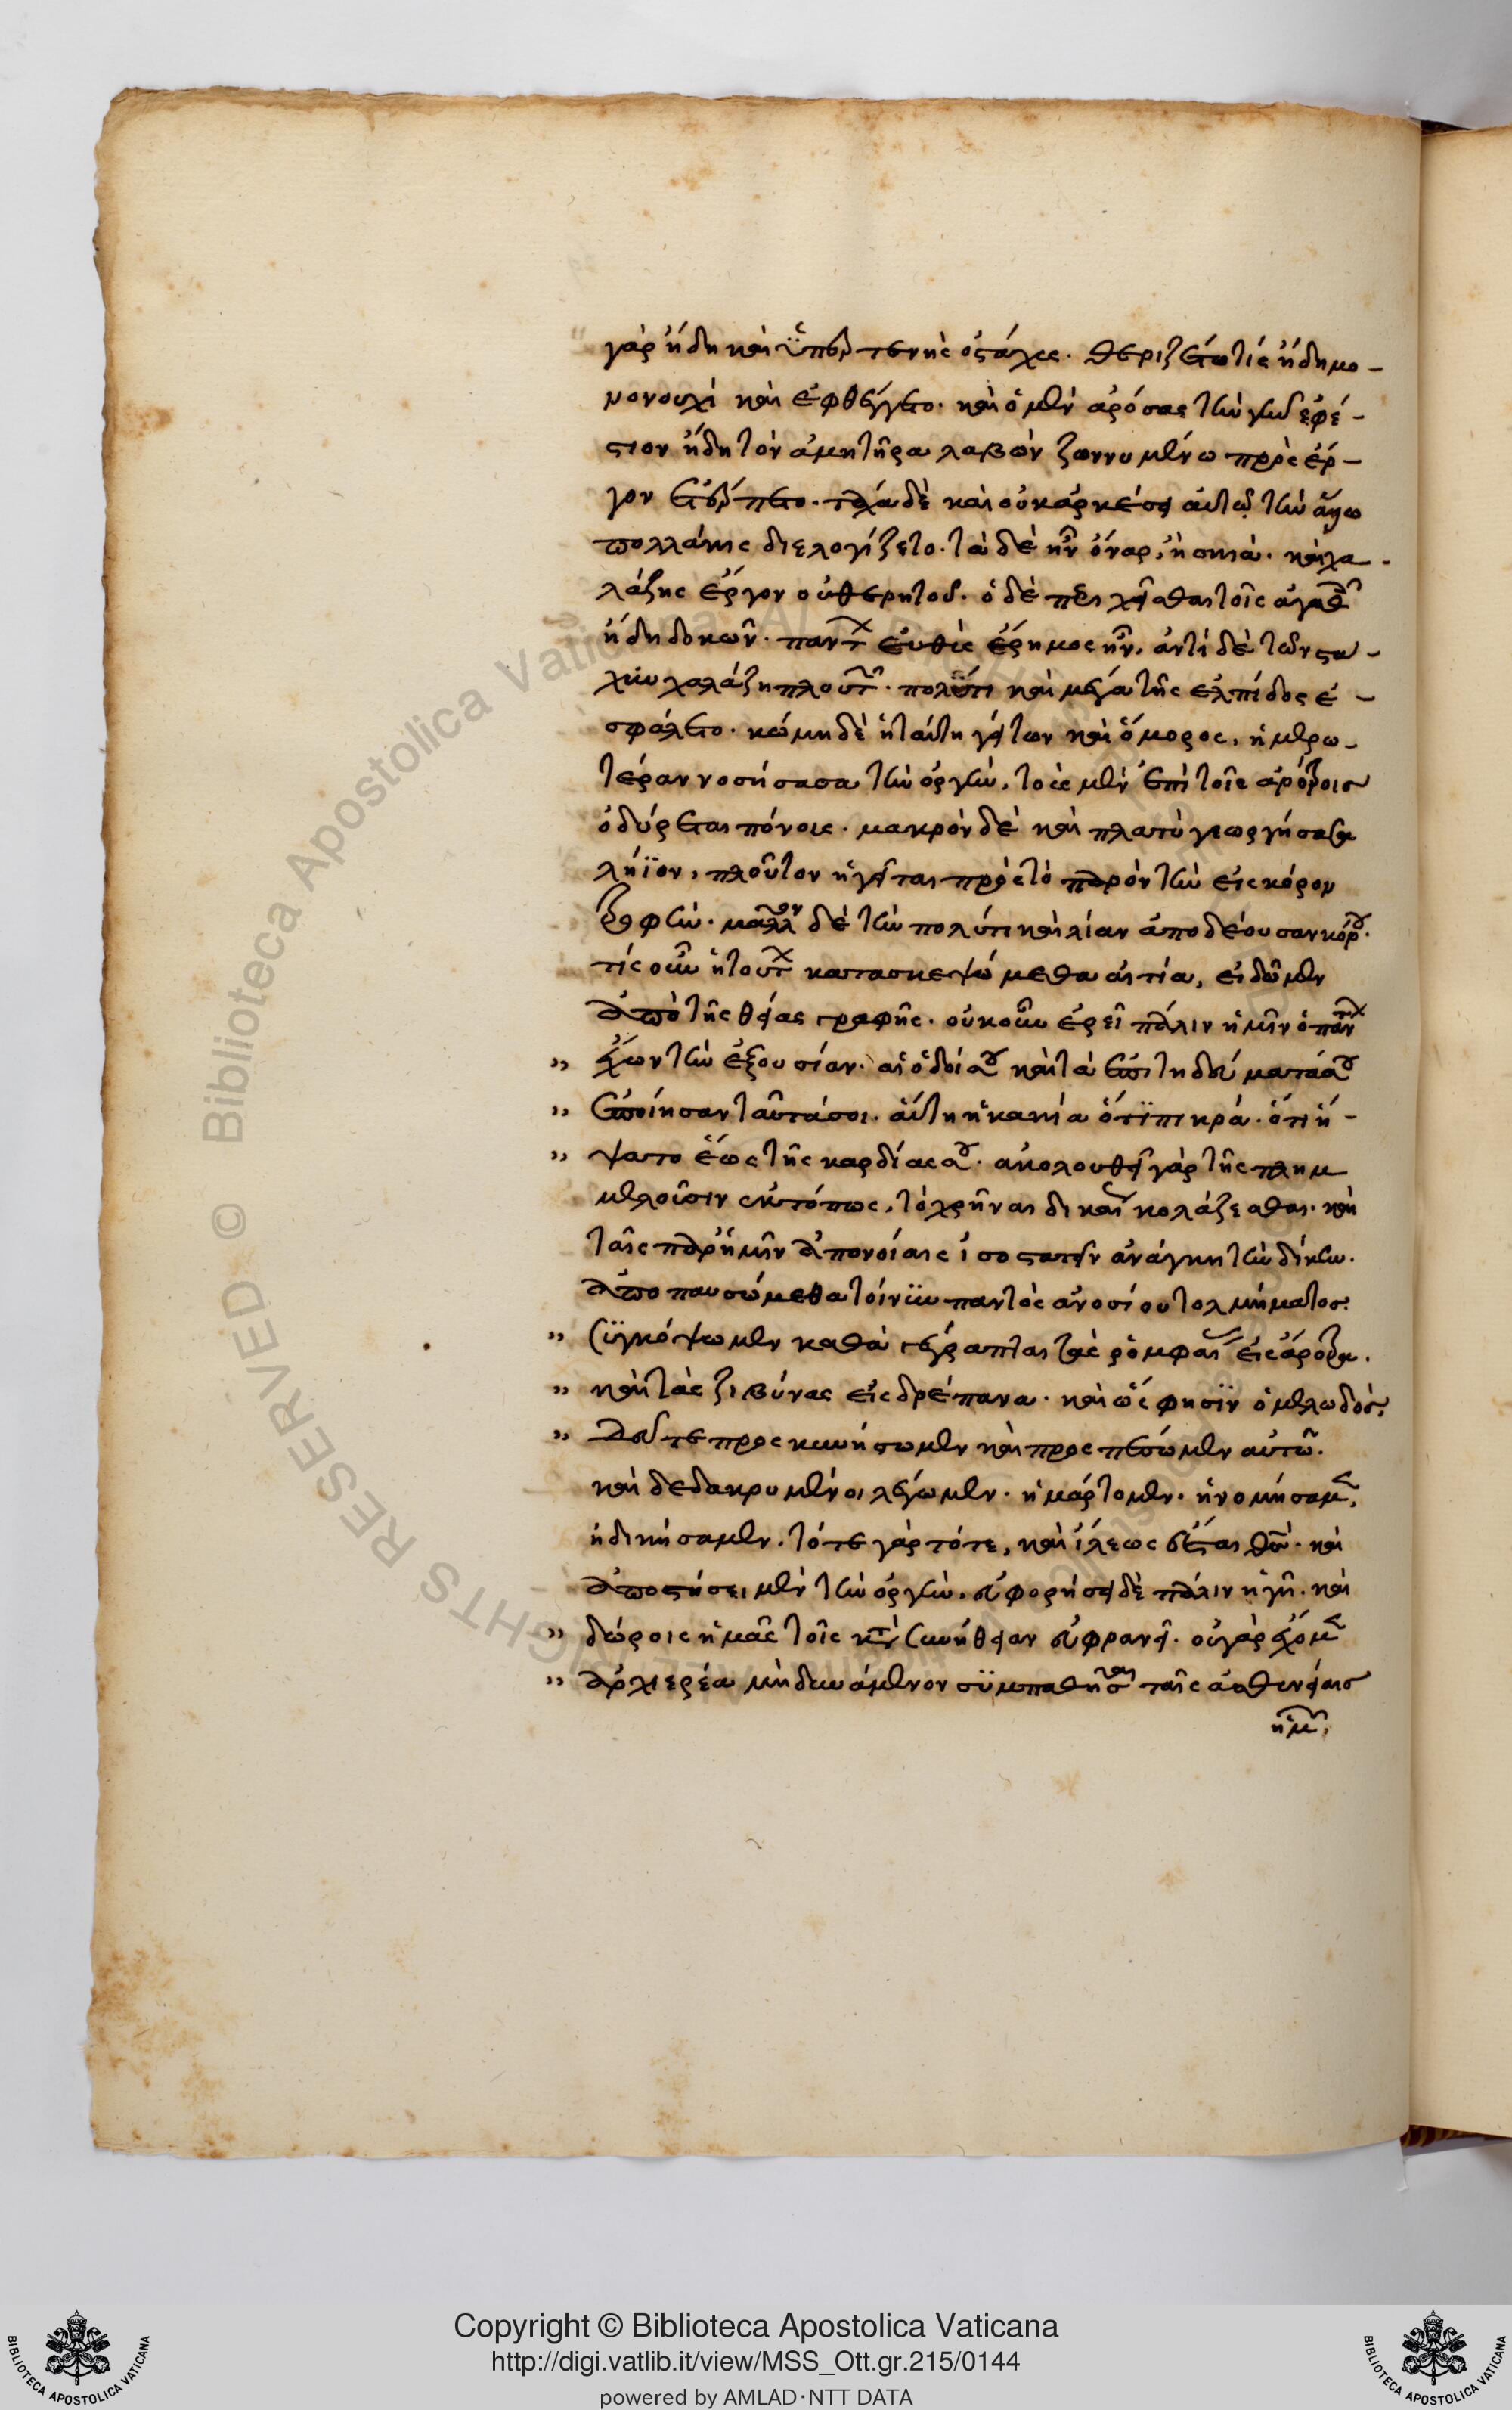 γὰρ ἤδη καὶ ὑπερτενὴς ὁ στάχυς. θεριζέτω τίς ἤδη μο-
μονουχὶ καὶ ἐφθέγγετο. καὶ ὁ μὲν ἀρόσας τὴν γῆν ἐφέ-
στιον ἤδη τὸν ἀμητῆρα λαβὼν ζωννυμένω πρὸς ἔρ-
γον ἐτέρπετο. τάχα δὲ καὶ οὐκ ἀρκέσει αὐτῷ τὴν ἅλω
πολλάκις διελογίζετο. τὰ δὲ ἦν ὄναρ, ἢ σκιά. καὶ χα-
λάζης ἔργον ὁ εὐθερὴς τοῦ. ὁ δὲ περιχεῖσθαι τοῖς ἀγαθοῖς
ἤδη δοκῶν. πάντων εὐθὺς ἔρημος ἦν. ἀντὶ δὲ τῶν στα-
χύων χαλάζῃ πλουτῶν. πολύ τι καὶ μέγα τῆς ἐλπίδος ἐ-
σφάλετο. κώμη δὲ ἡ ταύτῃ γείτων καὶ ὅμορος, ἡμερω-
τέραν νοσήσασα τὴν ὀργήν, τοὺς μὲν ἐπὶ τοῖς ἀρότροις
ὀδύρεται πόνοις. μακρὸν δὲ καὶ πλατὺ γεωργήσασα
λήϊον, πλοῦτον ἡγεῖται πρὸς τὸ παρὸν τὴν εἰς κόρον
τροφήν. μᾶλλον δὲ τὴν πολύ τι καὶ λίαν ἀποδέουσαν κόρου.
τίς οὖν ἡ τούτων κατασκεψώμεθα αἰτία, εἰδῶμεν
ἀπὸ τῆς θείας γραφῆς. οὐκοῦν ἐρεῖ πάλιν ἡμῖν ὁ πάντων
" ἔχων τὴν ἐξουσίαν. αἱ ὁδοί σου καὶ τὰ ἐπιτηδεύματά σου
" ἐποίησαν ταῦτά σοι. αὕτη ἡ κακία ὅτι πικρά. ὅτι ἥ-
" ψατο ἕως τῆς καρδίας σου. ἀκολουθεῖ γὰρ τῆς πλημ
μελοῦσιν ἐκτόπως, τὸ χρῆναι δικαίως κολάζεσθαι. καὶ
ταῖς παρ' ἡμῖν ἀπονοίαις ἰσοστατεῖν ἀνάγκη τὴν δίκην.
ἀποπαυσώμεθα τοίνυν παντὸς ἀνοσίου τολμήματος.
" συγκόψωμεν καθὰ γέγραπται τὰς ῥομφαίας εἰς ἄροτρα.
" καὶ τὰς ζιβύνας εἰς δρέπανα. καὶ ὥς φησὶν ὁ μελωδός,
" Δεῦτε προσκυνήσωμεν καὶ προσπέσωμεν αὐτῷ.
καὶ δεδακρυμένοι λέγωμεν. ἡμάρτομεν. ἠνομήσαμεν,
ἠδικήσαμεν. τότε γὰρ τότε, καὶ ἵλεως ἔσται θεός. καὶ
ἀποστήσει μὲν τὴν ὀργήν. εὐφορήσει δὲ πάλιν ἡ γῆ. καὶ
" δώροις ἡμᾶς τοῖς κατὰ συνήθειαν εὐφρανεῖ. οὐ γὰρ ἔχομεν
" ἀρχιερέα μὴ δυνάμενον συμπαθῆσαι ταῖς ἀσθενείαις
ἡμῶν,
Copyright © Biblioteca Apostolica Vaticana
http://digi.vatlib.it/view/MSS_Ott.gr.215/0144
powered by AMLAD·NTT DATA